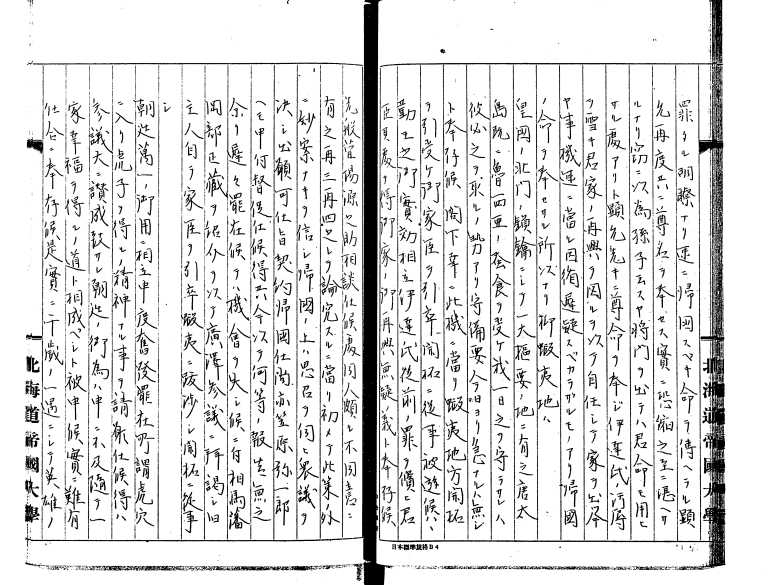 罪タル明瞭ナリ速ニ帰国スベキ命ヲ傳ヘラル顕
允再度共ニ尊名ヲ奉セス實ニ恐怕之至ニ湛ヘサ
ルナリ窃ニ以為孫子云スヤ将門ヲ出テハ君命モ用ヒ
サル處アリト顕允先キニ尊命ヲ奉シ伊達氏汚辱
ヲ雪キ君家ノ再興ヲ図ルヲ以テ自任シテ家ヲ出屈
ヤ事機運ニ當レ因循遅疑スベカラザルモノアリ帰国
ノ命ヲ奉セサル所以ナリ抑蝦夷地ハ
皇国ノ北門ノ鎖鑰ニシテ一大樞要ノ地ニ有之唐太
島既ニ魯西亜ノ蚕食ヲ受ケ我一日之ヲ守ラサレハ
彼必之ヲ取ルノ勢アリ守備要ハ今日ヨリ急ナルハ無シ
ト奉存候閣下幸ニ此機ニ當リ蝦夷地方開拓
ヲ引受ケ御家臣ヲ引率開拓ニ從事被遊候ハヽ
勤王之御實効相立伊達氏從前ノ罪ヲ償ヒ君
臣其處ヲ得御家ノ御再興ハ無疑義ト奉存候
先般曽陽源之助相談仕候處同人頗ル不同意ニ
有之再三再四之レヲ論究スルニ當リ初メテ此策ノ外
ニ妙案ナキヲ信シ帰國ノ上ハ思召ヲ伺ヒ衆議ヲ
決シ出願可仕旨契約帰國仕尚亦笠原弥一郎
ヘモ申付督促仕候得共今以テ何等ノ報告無之
余リ遅々罷在候テハ機會ヲ失シ候ニ付相馬藩
岡部正蔵ヲ紹介ヲ以テ廣澤参議ニ拝謁シ旧
主人自ラ家臣ヲ引率蝦夷ニ跋渉シ開拓ニ從事
シ
朝廷萬一ノ御用ニ相立申度奮發罷在所謂虎穴
ニ入リ虎子ヲ得ルノ精神アル事ヲ請願仕候得ハ
参議大ニ賛成致サレ朝廷ノ御為ハ申ニ不及隨テ一
家幸福ヲ得ルノ道ト相成ベシト被申候實ニ難有
仕合ニ奉存候是實ニ千歳ノ一遇ニシテ英雄ノ
北海道帝國大學
北海道帝國大學
日本標準規格B4